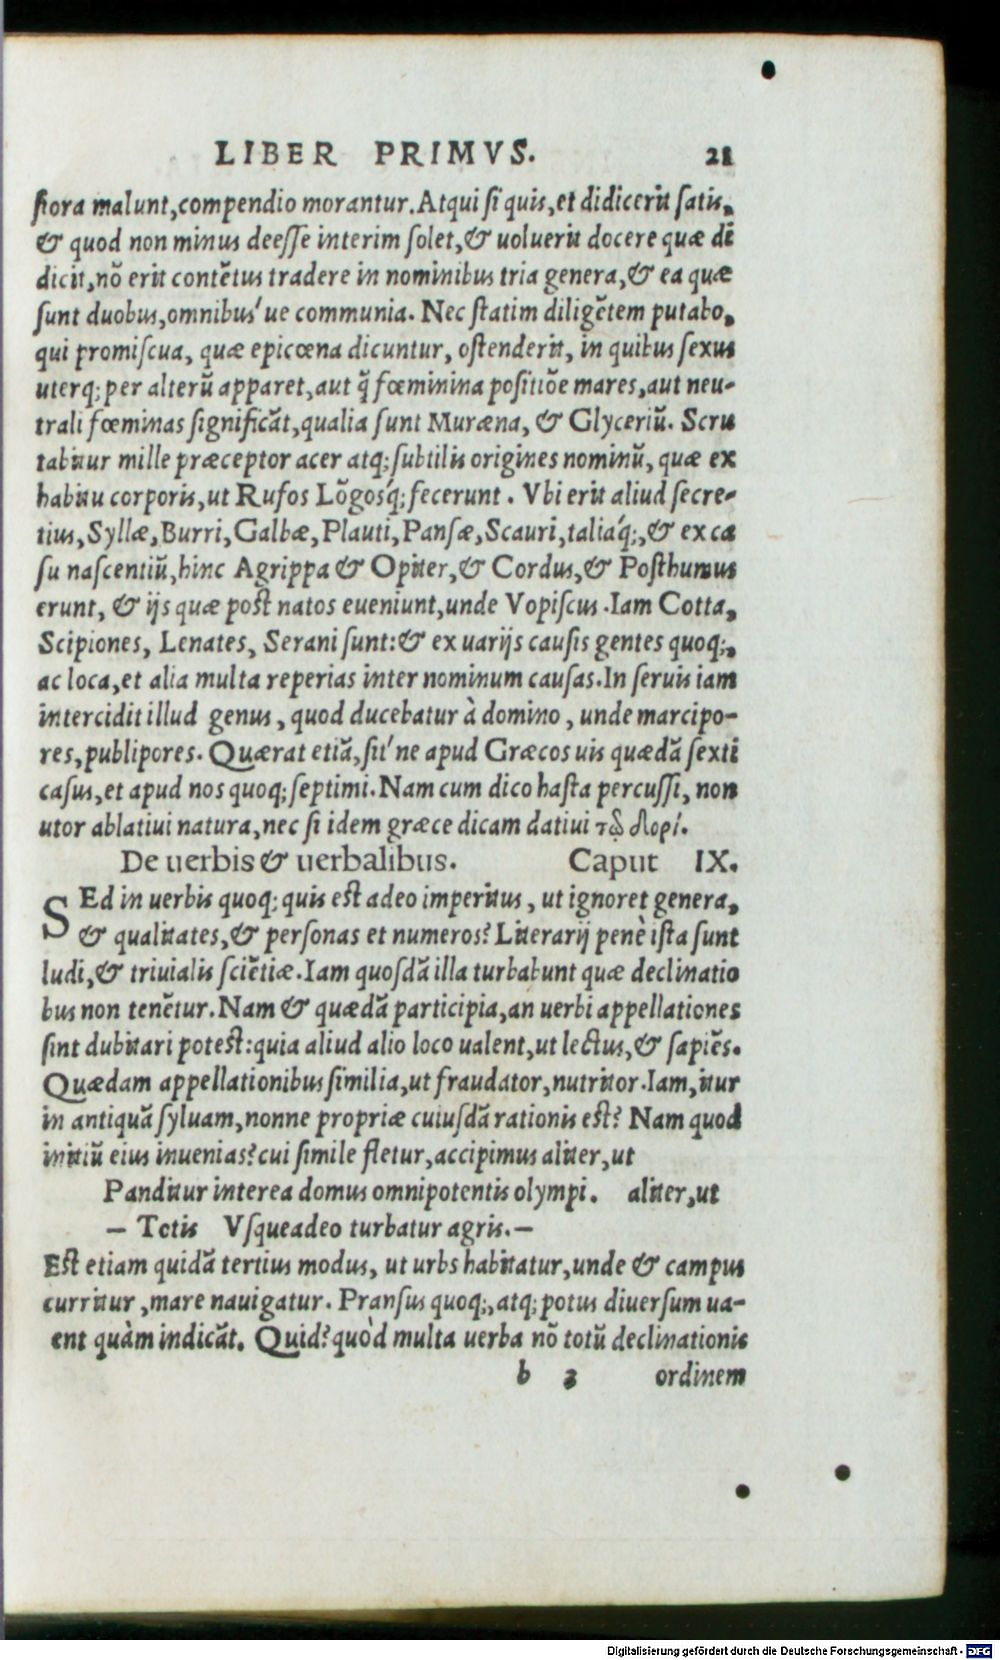 LIBER PRIMVS. 21
siora malunt,compendio morantur.Atqui si quis,et didicerit satis,
& quod non minus deesse interim solet,& uoluerit docere quæ di
dicit,nō erit contētus tradere in nominibus tria genera,& ea quæ
sunt duobus,omnibus'ue communia. Nec statim diligētem putabo,
qui promiscua, quæ epicœna dicuntur, ostenderit, in quibus sexus
uterq; per alterū apparet,aut q̄ fœminina positiōe mares,aut neu-
trali fœminas significāt,qualia sunt Muræna, & Glyceriū. Scru
tabitur mille præceptor acer atq; subtilis origines nominū, quæ ex
habitu corporis,ut Rufos Lōgosq́; fecerunt. Vbi erit aliud secre-
tius,Syllæ,Burri,Galbæ,Plauti,Pansæ,Scauri,taliaq́;,& ex ca
su nascentiū,hinc Agrippa & Opiter,& Cordus,& Posthumus
erunt, & ijs quæ post natos eueniunt,unde Vopiscus.Iam Cotta,
Scipiones, Lenates, Serani sunt:& ex uarijs causis gentes quoq;,
ac loca,et alia multa reperias inter nominum causas.In seruis iam
intercidit illud genus, quod ducebatur à domino, unde marcipo-
res,publipores. Quærat etiā,sit'ne apud Græcos uis quædā sexti
casus,et apud nos quoq; septimi.Nam cum dico hasta percussi, non
utor ablatiui natura,nec si idem græce dicam datiui τῷ δορί.
De uerbis & uerbalibus. Caput IX.
SEd in uerbis quoq; quis est adeo imperitus, ut ignoret genera,
& qualitates,& personas et numeros? Literarij penè ista sunt
ludi,& triuialis sciētiæ.Iam quosdā illa turbabunt quæ declinatio
bus non tenētur.Nam & quædā participia,an uerbi appellationes
sint dubitari potest:quia aliud alio loco ualent,ut lectus,& sapiēs.
Quædam appellationibus similia,ut fraudator,nutritor.Iam,itur
in antiquā syluam,nonne propriæ cuiusdā rationis est? Nam quod
initiū eius inuenias?cui simile fletur,accipimus aliter,ut
Panditur interea domus omnipotentis olympi. aliter,ut
— Totis Vsqueadeo turbatur agris.—
Est etiam quidā tertius modus, ut urbs habitatur,unde & campus
curritur,mare nauigatur. Pransus quoq;,atq; potus diuersum ua-
ent quàm indicāt. Quid?quòd multa uerba nō totū declinationis
b 3 ordinem
Digitalisierung gefördert durch die Deutsche Forschungsgemeinschaft - DFG